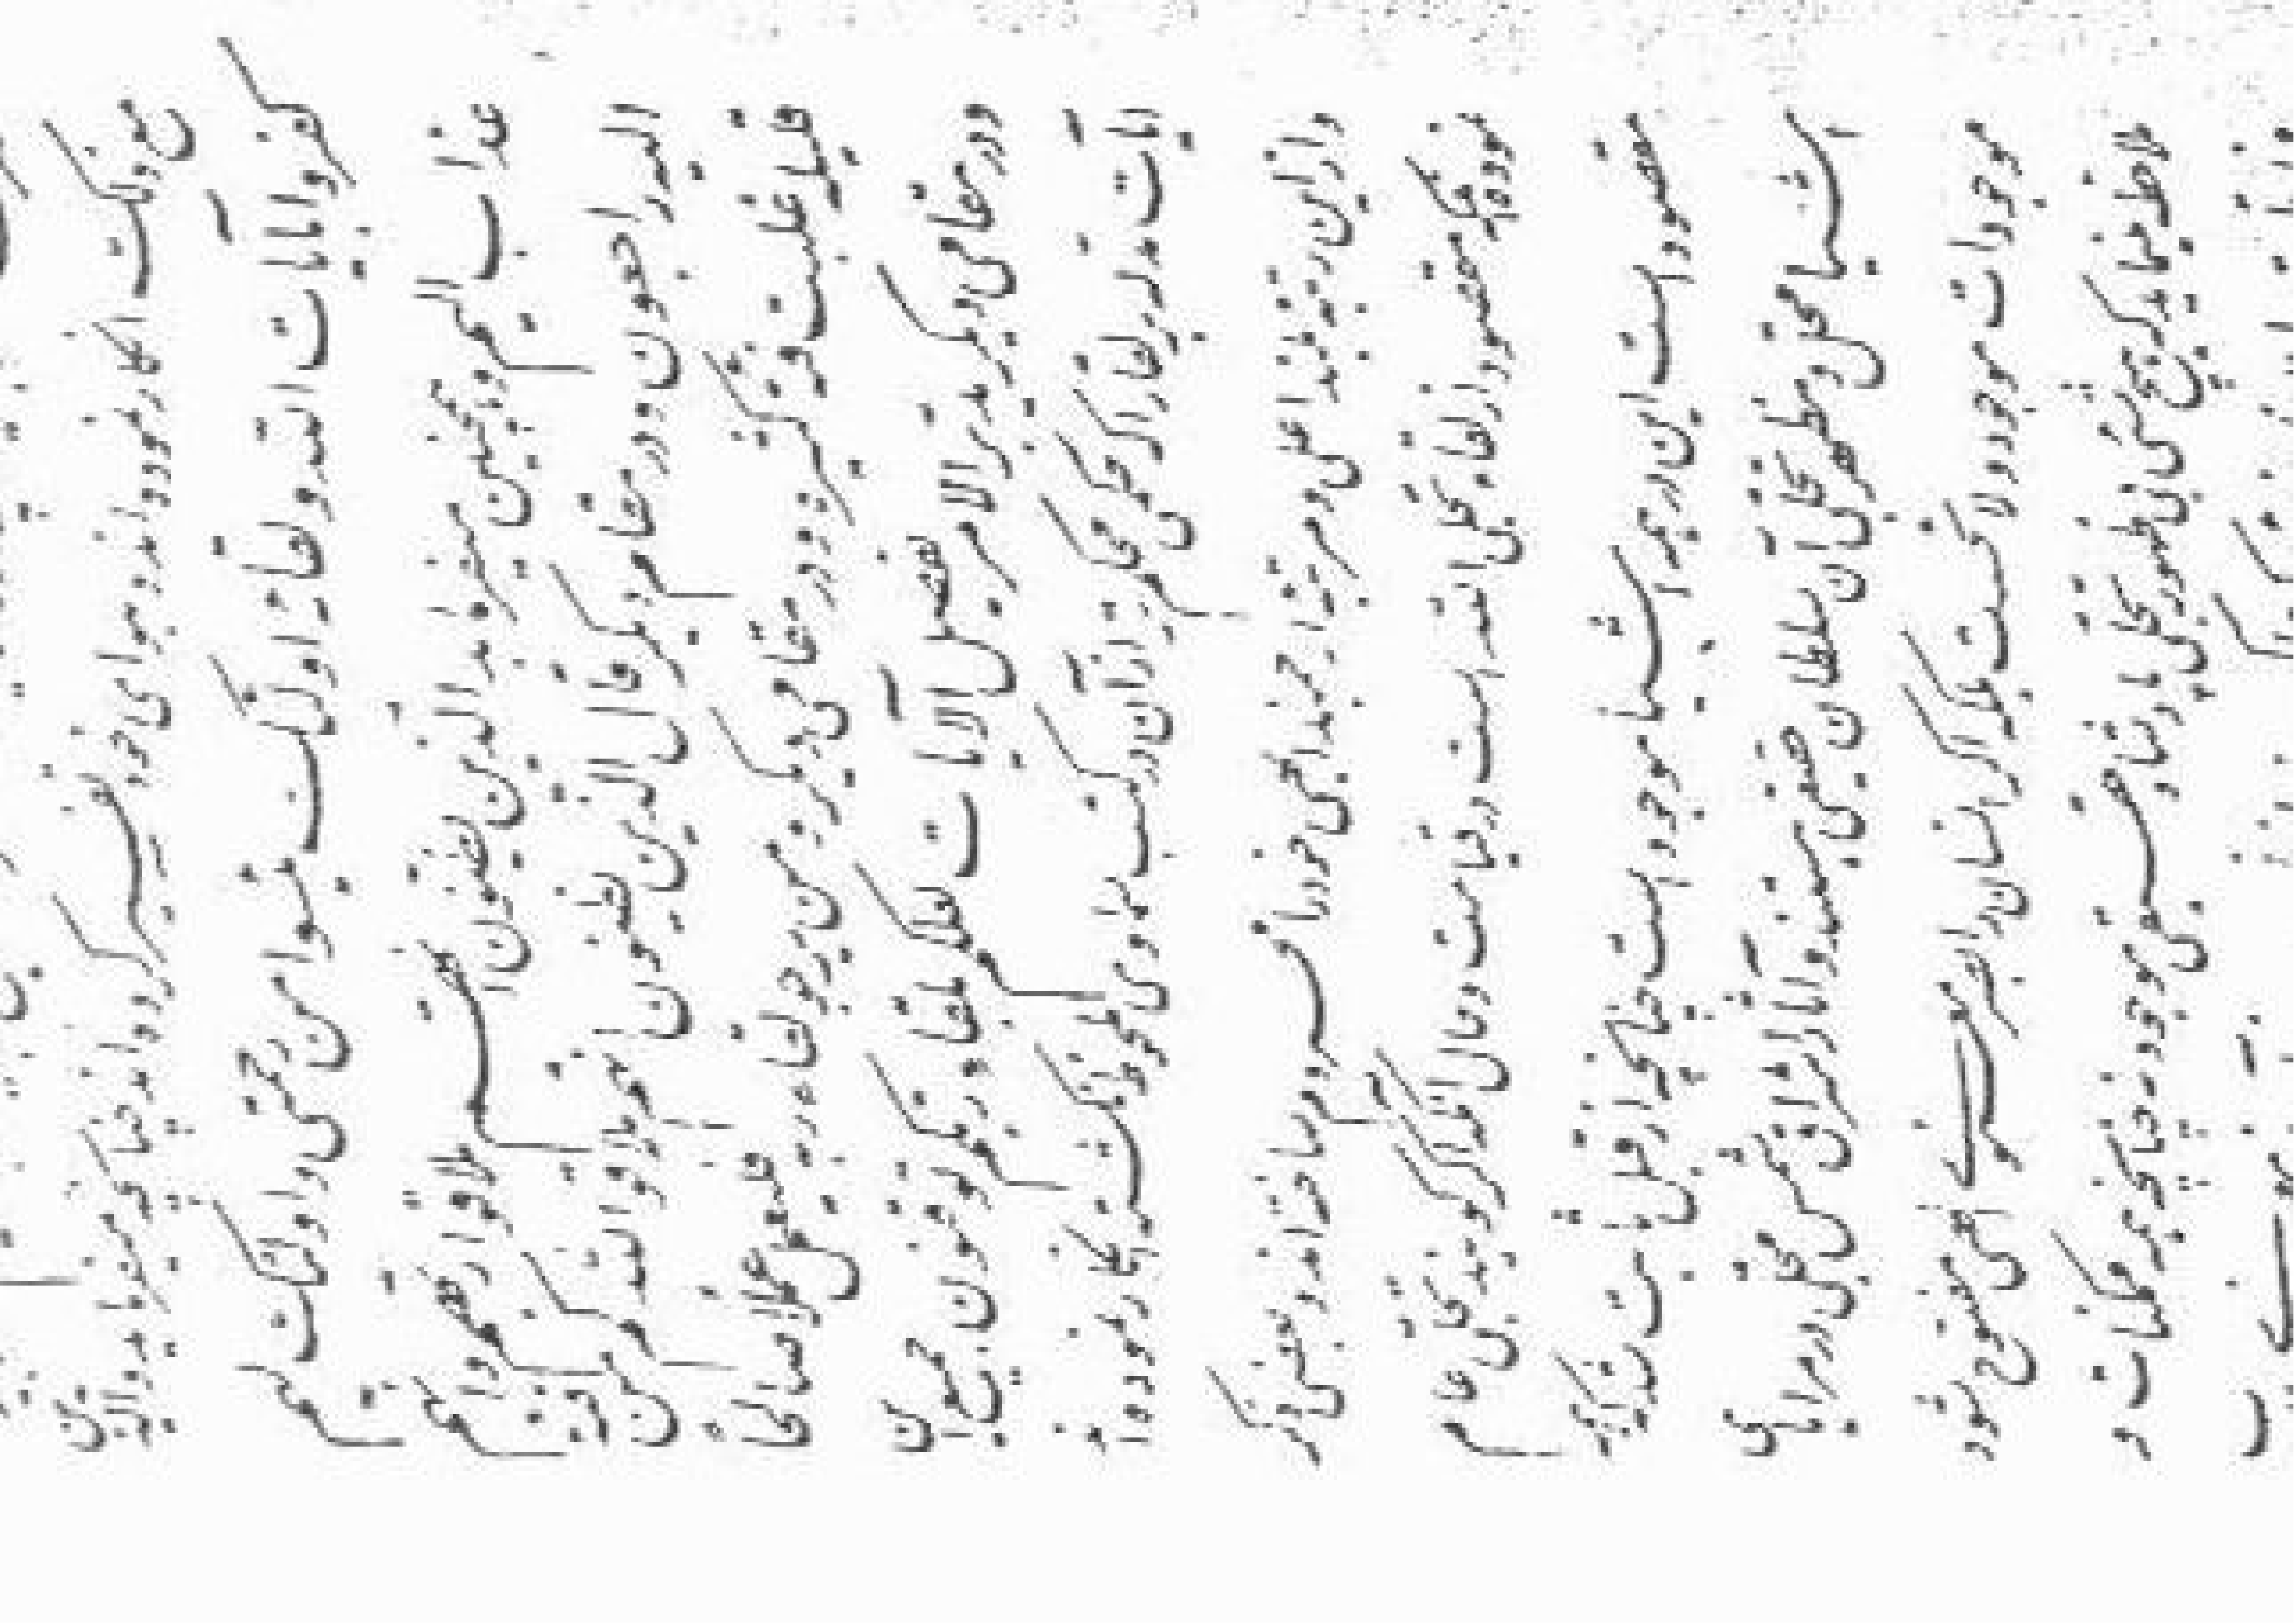 مع ذلک انکار نموده‌اند و بهوای خود تفسیر کرده‌اند چنانکه میفرماید والذین
کفروا بآیات الله و لقائه اولئک یئسوا من رحمتی و اولئک لهم
عذاب الیم و همچنین میفرماید الذین یظنون انهم ملاقوا ربهم و انهم
الیه راجعون و در مقام دیگر قال الذین یظنون انهم ملاقوا الله کم من فئة
قلیلة غلبت فئة کثیرة و در مقامی دیگر فمن کان یرجوا لقاء ربه فلیعمل عملا صالحا
و در مقامی دیگر یدبر الامر یفصل الآیات لعلکم بلقاء ربکم توقنون جمیع این
آیات مدله بر لقا را که حکمی محکم‌تر از آن در کتب سماوی ملحوظ نگشته انکار نموده‌اند
و از این رتبه بلند اعلی و مرتبه ارجمند ابهی خود را محروم ساخته‌اند و بعضی ذکر
نموده‌اند که مقصود از لقاء تجلی الله است در قیامت و حال آنکه اگر گویند تجلی عام
مقصود است این در همه اشیاء موجود است چنانچه از قبل ثابت شد که همه
اشیاء محل و مظهر تجلی آن سلطان حقیقی هستند و آثار اشراق شمس مجلی در مرایای
موجودات موجود و لائحست بلکه اگر انسان را بصر معنوی الهی مفتوح شود
ملاحظه مینماید که هیچ شیئی بی ظهور تجلی پادشاه حقیقی موجود نه چنانچه همه ممکنات و